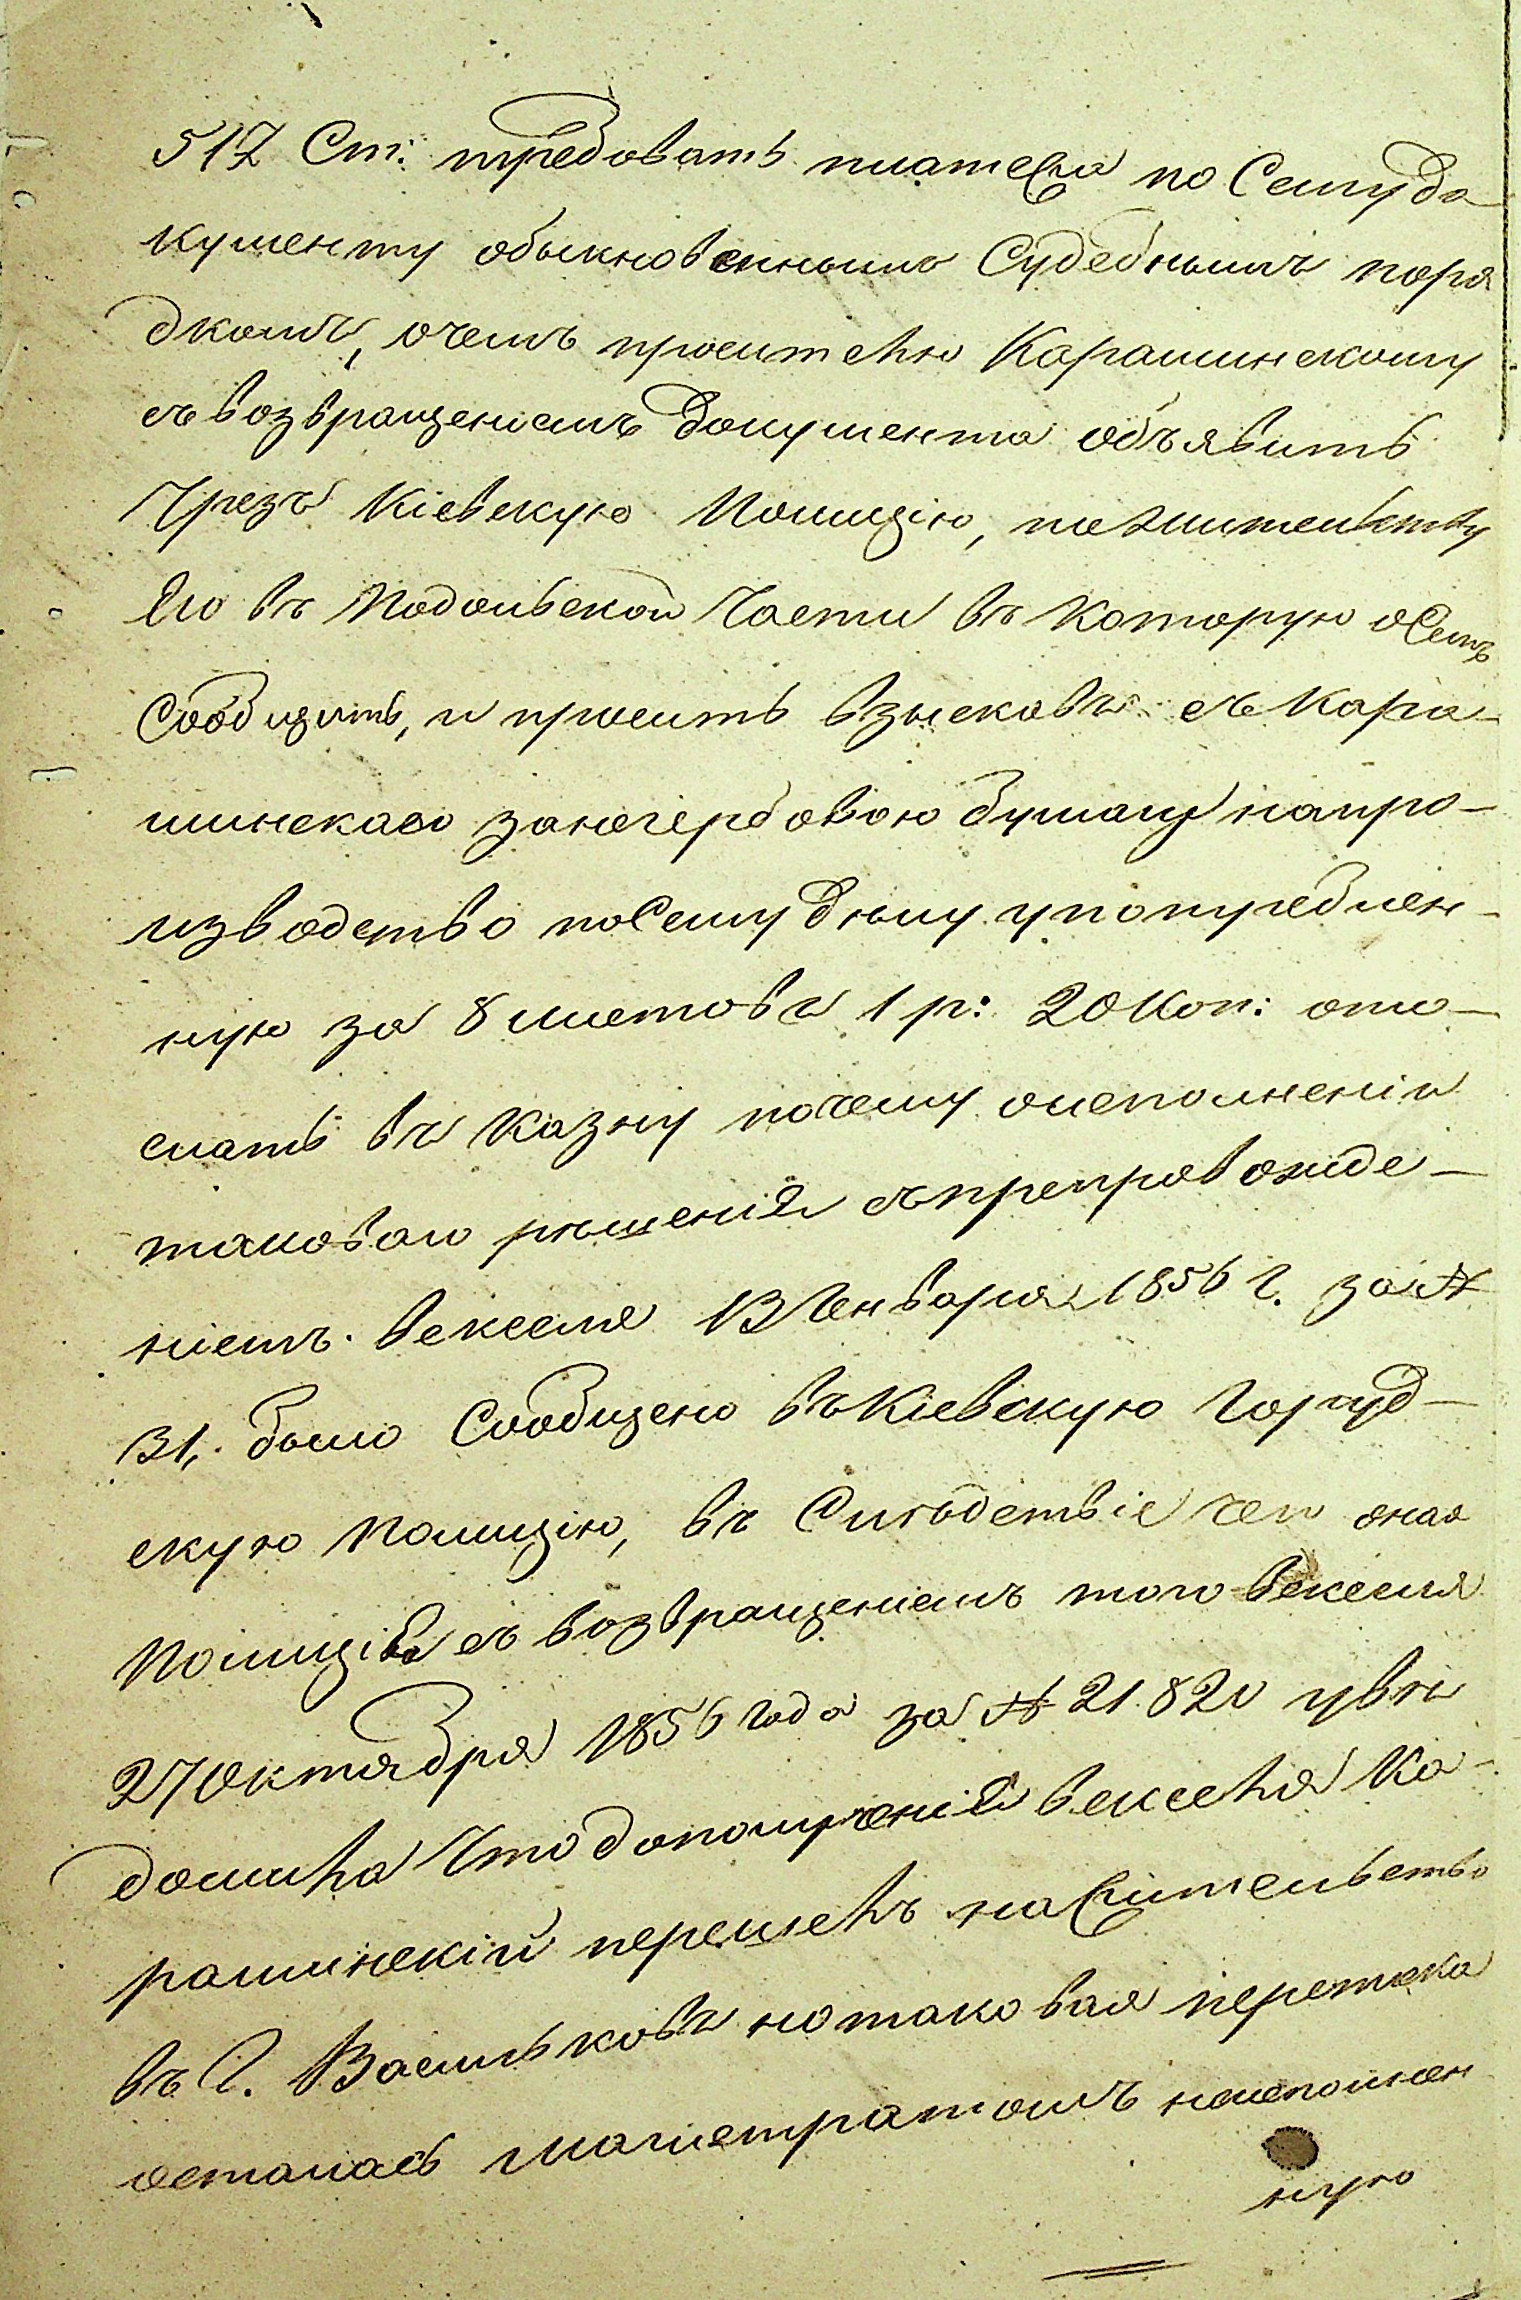 517 Ст: требовать платежа по Сему до
кументу обыкновеннымъ Судебнымъ поря
дкомъ, очемъ просителю Карашинскому
съ возвращениемъ документа объявить
Чрезъ Кіевскую Полицію, по жительству
Его въ Подольской Части въ которую о Семъ
Сообщить, и просить взыскавъ съ Кара-
шинскаго за негербовою бумагу на про-
изводство по Сему делу употреблен-
ную за 8 листовъ 1 р: 20 Коп: ото-
слать въ Казну почему о исполненіи
таковаго решенія съ препровожде-
ніемъ векселя 13 Генваря 1856 г. за №
31, было Сообщено въ Кіевскую Город-
скую Полицію, въ Следствіе чего оная
Полиція съ возвращеніемъ того векселя
27 Октября 1856 года за № 21820 уве
домила Что до получения векселя Ка-
рашинскій перешелъ на Жительство
въ Г. Васильковъ но таковая переписка
осталась Магистратомъ неисполнен
ную